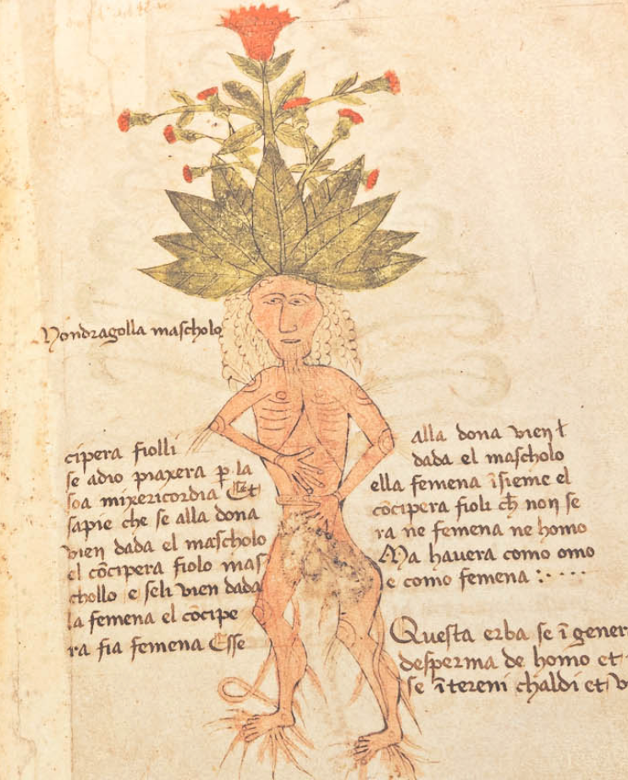 Mondragolla mascholo
cipera fiolli
se adio piaxera p la
soa mixericordia Et
sapie che se alla dona
vien dada el mascholo
el cōcipera fiolo mas
chollo e seli vien dada
la femena el cōcipe
ra fia femena Esse
alla dona vien ł
dada el mascholo
ella femena īsieme el
cōcipera fioli cħ non se
ra ne femena ne homo
Ma hauera como omo
e como femena :····
Questa erba se ī gener
desperma de homo et
se ītereni chaldi et v